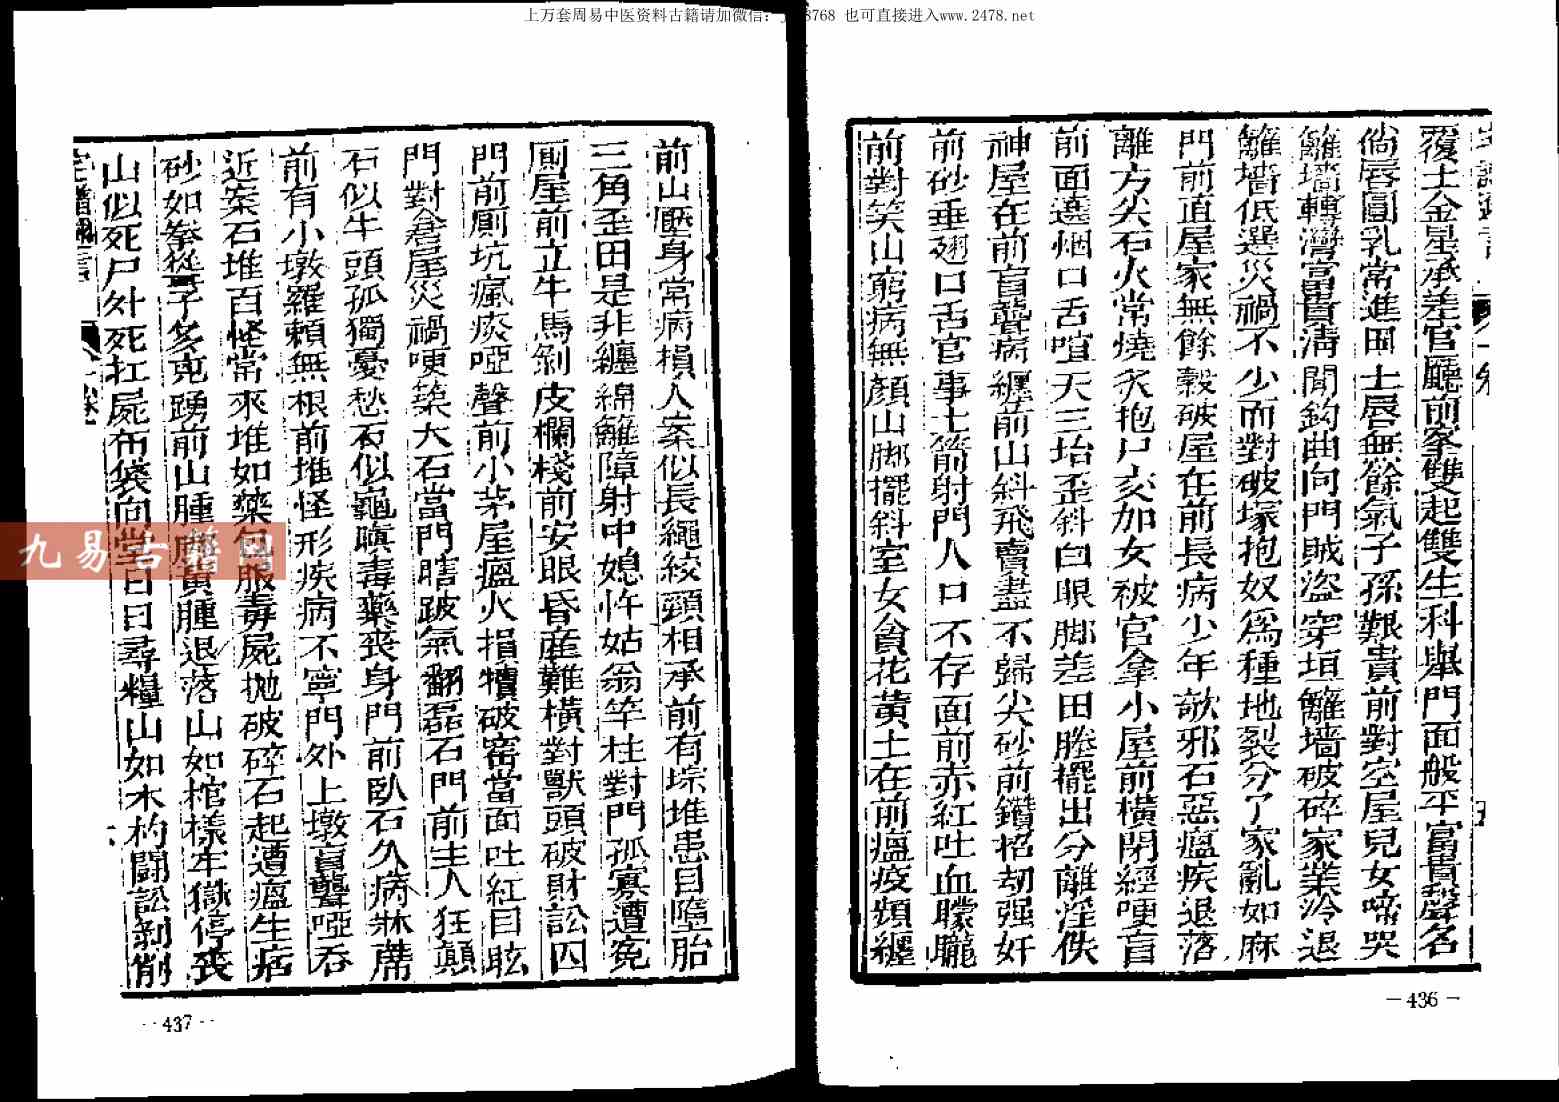 上万套周易中医资料古籍请加微信：
8768 也可直接进入www.2478.net
覆土金星承差官廳前峯雙起雙生科舉門面般平富貴聲名
尚唇圓乳常進田土唇無餘氣子孫艱貴前對空屋兒女啼哭
籬墻轉灣富貴淸閒鈎曲向門賊盜穿垣籬墻破碎家業冷退
籬墻低選災禍不少而對破塚抱奴爲種地裂分了家亂如麻
門前直屋家無餘穀破屋在前長病少年欹邪石惡瘟疾退落
離方尖石火常燒炙抱尸交加女被官拿小屋前橫閉經哽盲
前面邊烟口舌喧天三抬歪斜白眼脚差田塍擺出分離淫佚
神屋在前盲聾病纏前山斜飛賣盡不歸尖砂前鑽招劫强奸
前砂垂翅口舌官事土箭射門人口不存面前赤紅吐血矇矓
前對笑山窮病無顏山脚擺斜室女貪花黃土在前瘟疫頻纏
－436－
前山壓身常病損人案似長繩絞頸相承前有琮堆患目墮胎
三角歪田是非纏綿籬障射中媳忤姑翁竿柱對門孤寡遭冤
厠屋前立牛馬剝皮欄棧前安眼昏產難橫對獸頭破財訟囚
門前厠坑瘋痰啞聲前小茅屋瘟火損犢破窑當面吐紅目眩
門對倉屋災禍哽築大石當門瞎跛氣翻磊石門前主人狂顛
石似牛頭孤獨憂愁石似龜瞋毒藥喪身門前臥石久病牀蓆
前有小墩羅賴無根前堆怪形疾病不寧門外上墩盲聾啞吞
近案石堆百怪常來堆如藥包服毒屍抛破碎石起遭瘟生㾋
砂如拳從子多迍踴前山腫虛黃腫退落山如棺樣牢獄停喪
山似死尸外死扛屍布袋向堂日日尋糧山如木杓鬪訟剝削
六
437
九易古籍